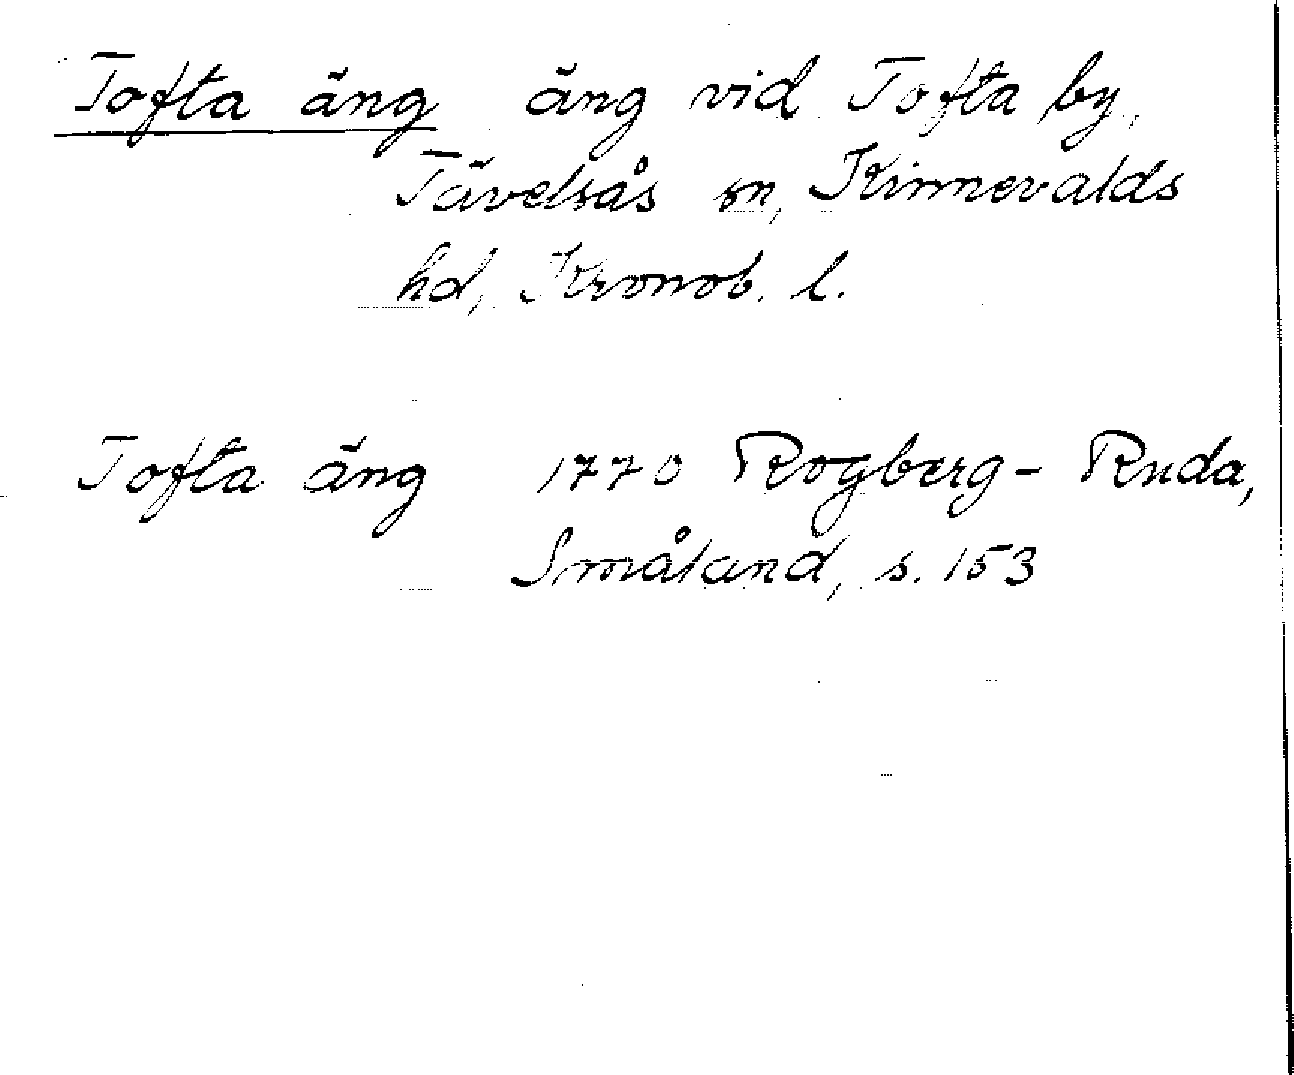 Tofta äng äng vid Tofta by,
Tävelsås sn, Kinnevalds
hd, Kronob. l.
Tofta äng 1770 Rogberg-Ruda,
Småland, s. 153